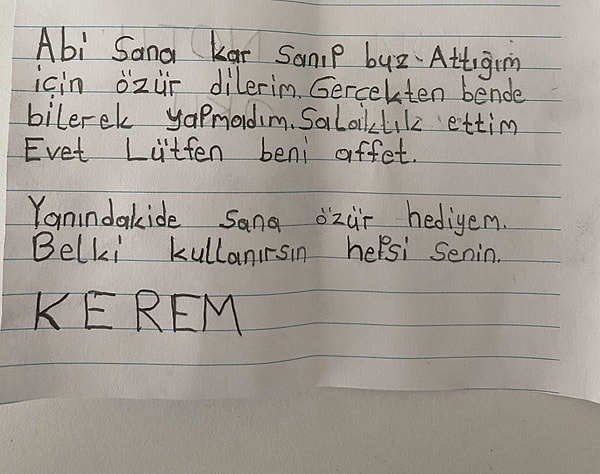 Abi Sana kar Sanıp buz Attığım
için özür dilerim. Gerçekten bende
bilerek yapmadım. Salaklık ettim
Evet Lütfen beni affet.
Yanındakide sana özür hediyem.
Belki kullanırsın hepsi senin.
KEREM